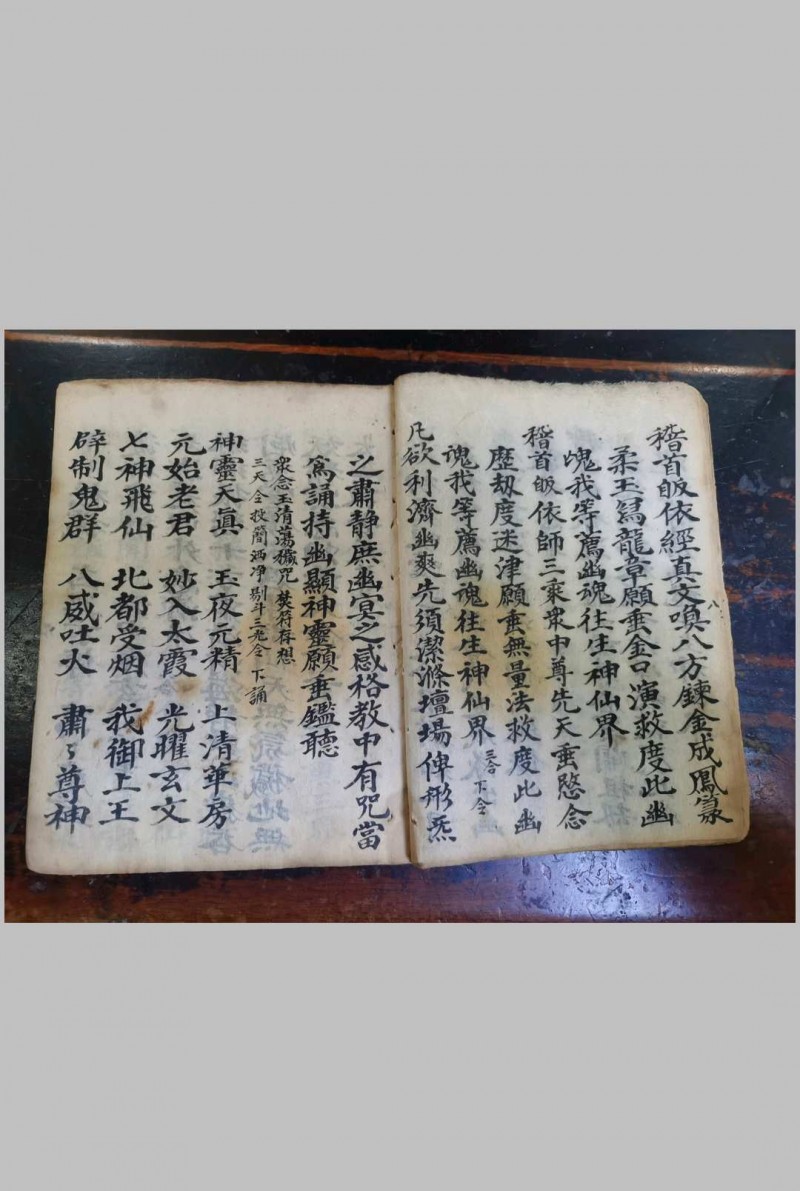 稽首皈依經真文喚八方鍊金成鳳篆
柔玉爲龍章願垂金口演救度此幽
魂我等薦幽魂往生神仙界
稽首皈依師三乘衆中尊先天垂愍念
歷刼度迷津願垂無量法救度此幽
魂我等薦幽魂往生神仙界 下令
凡欲利濟幽爽先須潔滌壇場俾彤炁
之肅靜庶幽冥之感格教中有咒當
爲誦持幽顯神靈願垂鑑聽
衆念玉清蕩穢咒 焚符存想
三天令投簡洒净剔斗三光令 下誦
神靈天真 玉夜元精 上清華房
元始老君 妙入太霞 光曜玄文
七神飛仙 北都受烟 我御上王
辟制鬼群 八威吐火 肅〻尊神